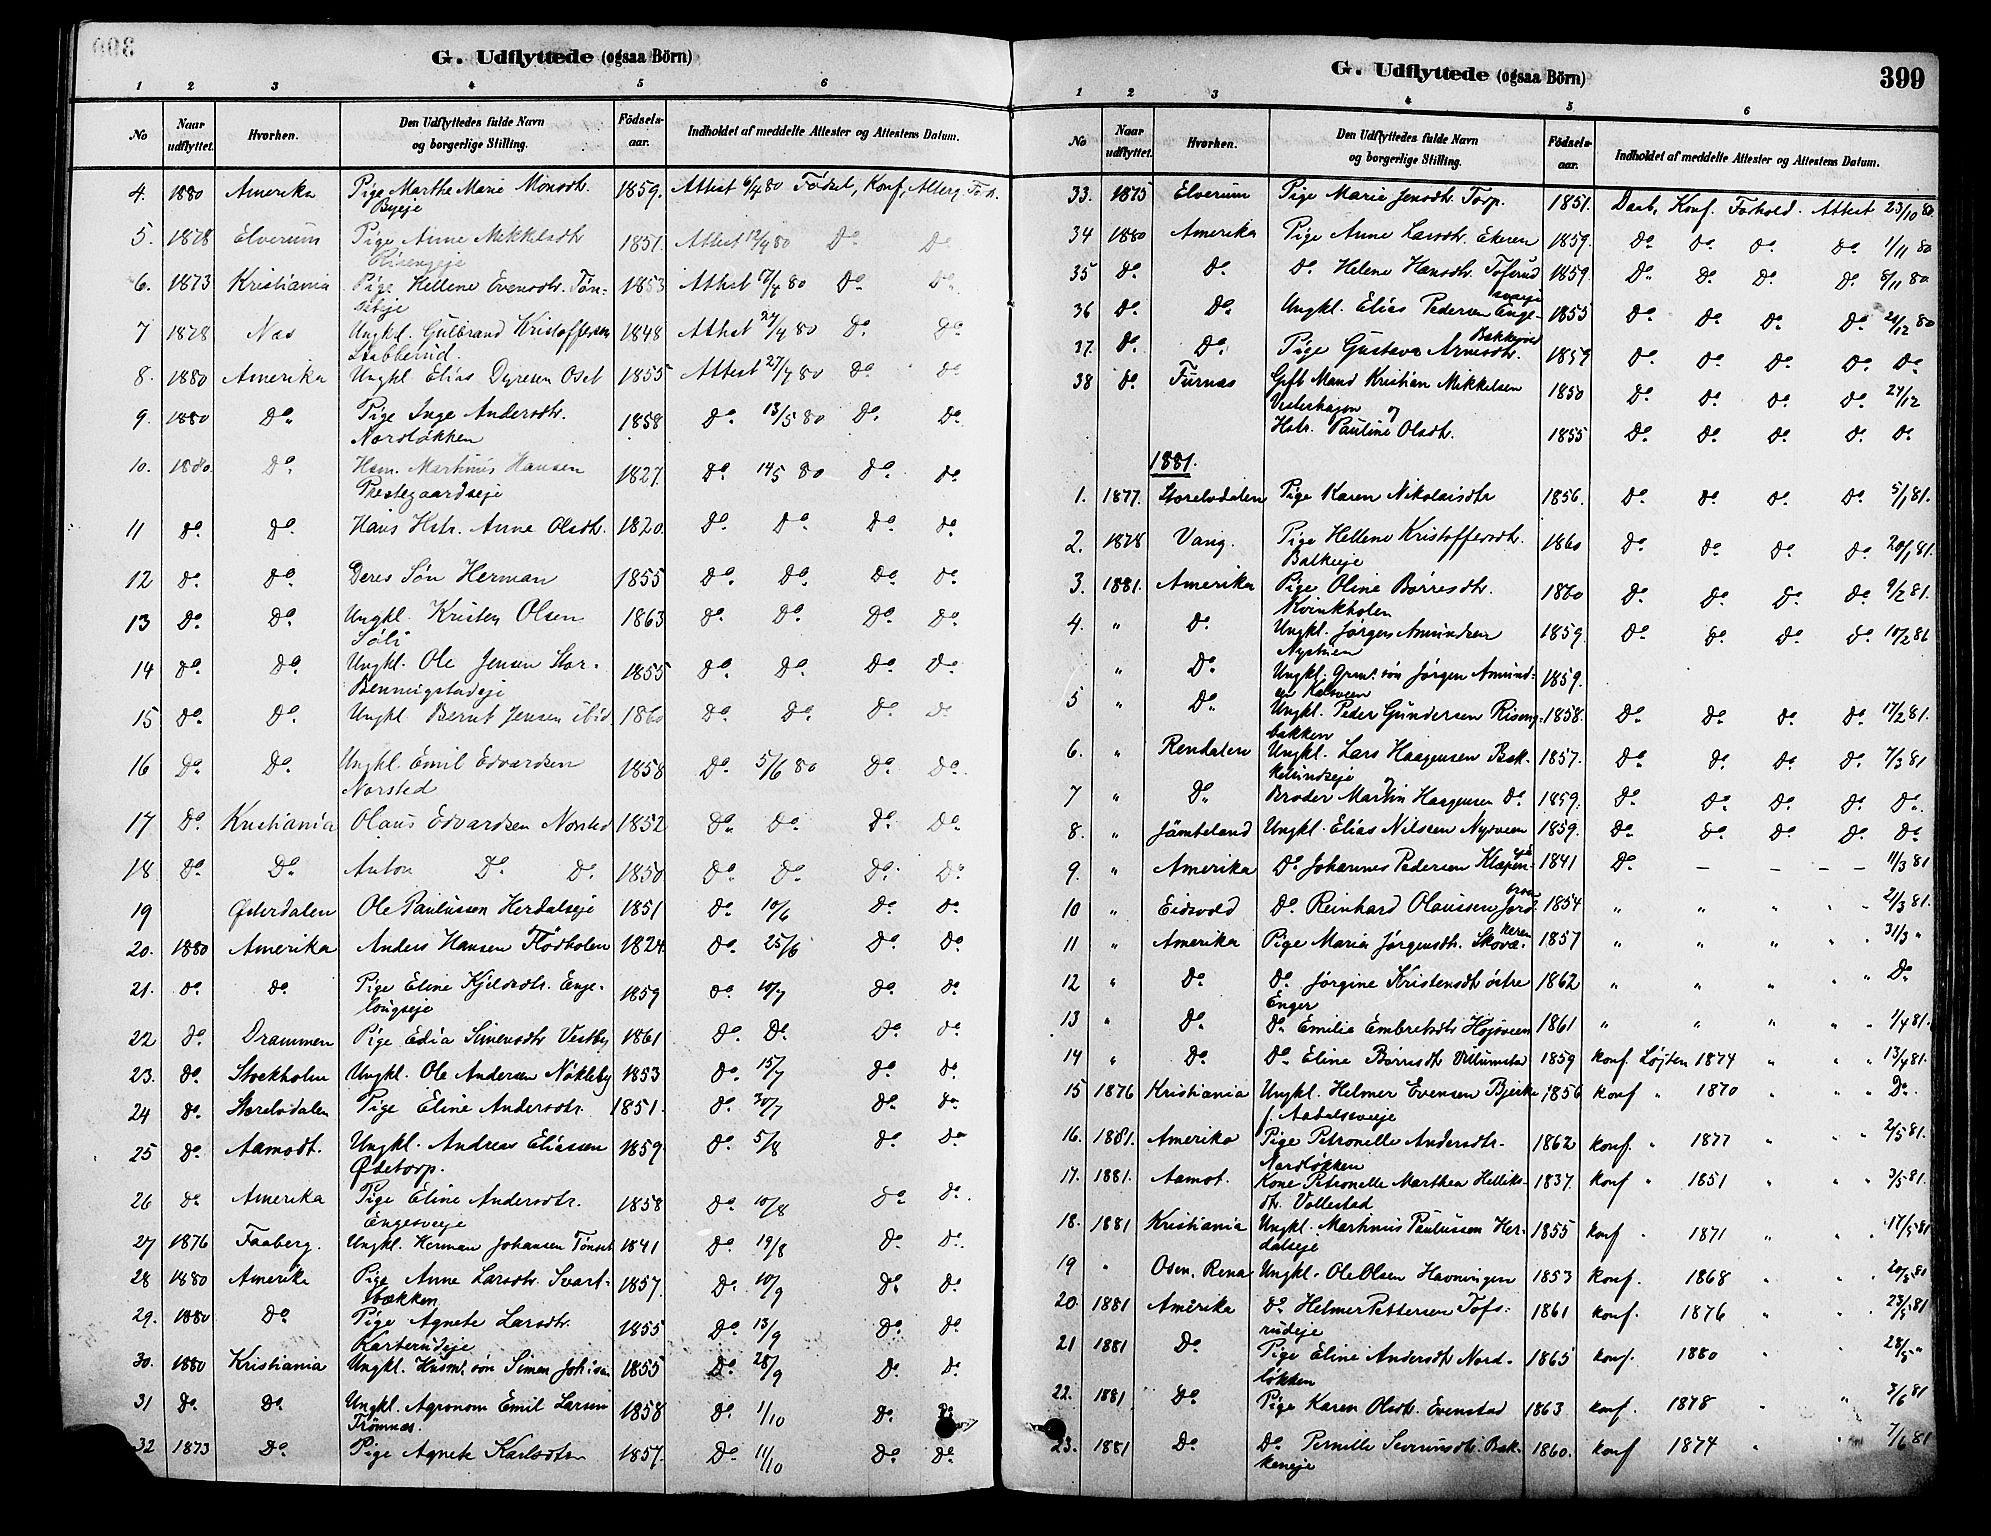 G. Udflyttede (ogsaa Börn)
1 2 3 4 5 6
No Naar udflyttet. Hvorhen. Den Udflyttedes fulde Navn og borgerlige Stilling. Födsels-aar. Indholdet af meddelte Attester og Attestens Datum.
4. 1880 Amerika Pige Marthe Marie Monsdtr. 1859. Attest 6/4 80 Födsel, Konf,
Byeje
5. 1878 Elverum Pige Anne Mikkelsdtr 1851. Attest 12/4 80 Do Do
Risengeje
6. 1873 Kristiania Pige Hellene Evensdtr. Tön- 1853 Attest 17/4 80 Do Do
7 1878 Nes Ungkl. Gulbrand Kristoffersen 1848 Attest 24/4 80 Do Do
Stabberud.
8. 1880 Amerika Ungkl Elias Dyresen Oset 1855 Attest 27/4 80 Do Do
9. 1880 Do Pige Inge Andersdtr. 1858 Do 13/5 80 Do Do
Nordløkken
10. 1880. Do. Hsm. Martinus Hansen 1827. Do 14/5 80 Do Do
Prestegaardseje
11 Do. Do. Hans Hstr. Anne Olsdtr. 1820. Do. Do. Do. Do
12 Do. Do. Deres Søn Herman 1855 Do. Do. Do. Do.
13 Do. Do. Ungkl. Kristen Olsen 1863 Do. Do. Do. Do.
Søli
14 Do. Do. Ungkl. Ole Jensen Stor- 1855 Do. Do. Do. Do
Benningstadeje
15 Do. Do. Ungkl Bernt Jensen ibid 1860 Do. Do. Do. Do
16 Do. Do. Ungkl. Emil Edvardsen 1858 Do. 5/6 80 Do. Do.
Norsted
17 Do. Kristiania Olaus Edvardsen Norsted 1852 Do. Do. Do. Do.
18. Do. Do. Anton Do. Do. 1850 Do. Do. Do. Do
19 Østerdalen Ole Paulussen Herdalseje 1851 Do. 10/6 Do. Do.
20. 1880 Amerika Anders Hansen Flödholen 1824. Do. 25/6 Do. Do.
21. Do. Do. Pige Eline Kjeldsdtr. Enge- 1859 Do 10/7 Do. Do.
lougseje
22 Do. Drammen Pige Edia Simensdtr Vestby 1861 Do. Do. Do. Do.
23. Do. Stockholm Ungkl. Ole Andersen Nökleby 1853 Do. 15/7 Do. Do.
24 Do. Storelvdalen Pige Eline Andersdtr. 1851. Do. 30/7 Do. Do.
25 Do. Aamodt. Ungkl. Andreas Eliassen 1859. Do. 5/8 Do. Do.
Ødetorp.
26 Do. Amerika Pige Eline Andersdtr. 1858 Do. 10/8 Do. Do.
Engesveje
27 1876 Faaberg. Ungkl. Herman Johansen Tönset 1841 Do. 19/8 Do. Do.
28 1880 Amerika Pige Anne Larsdtr. Svart- 1857. Do. 10/9 Do. Do.
bækken
29. 1880 Do Pige Agnete Larsdtr. 1855 Do. 13/9 Do. Do.
Karterudeje
30. 1880 Kristiania Ungkl. Husm. søn Simen 1855 Do. 28/9 Do. Do.
31 Do. Do. Ungkl. Agronom Emil Larsen 1858 Do. 1/10 Do. Do.
Frömnæs.
32 1873 Do. Pige Agnete Karlsdtr 1857. Do. 11/10 Do. Do.
G. Udflyttede (ogsaa Börn) 399
1 2 3 4 5 6
No Naar udflyttet. Hvorhen. Den Udflyttedes fulde Navn og borgerlige Stilling. Födsels-aar. Indholdet af meddelte Attester og Attestens Datum.
33. 1875 Elverum Pige Marie Jensdtr. Torp. 1851. Daab, Konf. Forhold. Attest 23/10 80
34 1880 Amerika Pige Anne Larsdtr. Ekeren 1859. Do. Do. Do. Do. 1/11 80
35 Do. Do. Do. Helene Hansdtr. Tofsrud 1859. Do. Do. Do. Do. 8/11 80
sveje
36 Do. Do. Ungkl. Elias Pedersen Enge- 1855 Do. Do. Do. Do. 21/12 80
37. Do. Do. Pige Gustava Arnesdtr. 1859 Do. Do. Do. Do. Do.
38 Do. Furnæs Gift Mand Kristian Mikkelsen 1850 Do. Do. Do. Do. 24/12
Vesterhagen og
Hstr. Pauline Olsdtr. 1855 Do. Do. Do. Do. Do.
1881.
1. 1877. Storelvdalen Pige Karen Nikolaisdtr 1856. Do. Do. Do. Do. 5/1 81.
2. 1878 Vang. Pige Hellene Kristoffersdtr. 1860 Do. Do. Do. Do. 20/1 81.
Balkeeje
3. 1881. Amerika Pige Oline Børresdtr. 1860 Do. Do. Do. Do. 9/2 81.
Kvinkholen
4. " Do. Ungkl. Jørgen Amundsen 1859. Do. Do. Do. Do. 10/2 81
Nystuen
" Do. Ungkl. Grm. søn Jörgen Amund- 1859.
5 " Do. Ungkl. Peder Gundersen Riseng- 1858. Do. Do. Do. Do. 17/2 81.
bakken
6. " Rendalen Ungkl. Lars Haagensen Bak- 1857. Do. Do. Do. Do. 7/3 81
og
7 " Do. Broder Martin Haagensen Do 1859. Do. Do. Do. Do. Do.
8. " Jämteland Ungkl. Elias Nilssen Nysveen 1859. Do. Do. Do. Do. Do.
9. " Amerika Do. Johannes Pedersen Klæpen- 1841 Do. – – – – 11/3 81
10 " Eidsvold Do. Reinhard Olaussen Jord- 1854 " " " " " 21/3 81
11 " Amerika Pige Maria Jørgensdtr. Skovæ- 1857 " " " " " 31/3 "
keren
12 " Do. Do. Jørgine Kristensdtr østre 1862 " " " " " Do
Enger
13 " Do. Do. Emilie Embretsdtr Højsveen 1861 " " " " " 1/4 81.
14 " Do. Do. Eline Børresdtr 1859 konf. Løjten 1874 " " " 13/4 81.
15 1876 Kristiania Ungkl. Helmer Evensen Bjerke 1856 konf " 1870 " " " Do.
f. Aadalsveje
16. 1881. Amerika Pige Petronelle Andersdtr. 1862 konf. " 1877 " " " 2/5 81.
Nordløkken
17. 1881. Aamot. Kone Petronelle Marthea Helliks- 1837. konf " 1851 " " " 3/5 81.
dtr. Vollestad
18. 1881 Kristiania Ungkl. Martinus Paulussen Her- 1855 konf " 1871 " " " 17/5 81
dalseje
19 " Osen, Rena Ungkl. Ole Olsen Havningen 1853 konf. 1868 " " " 20/5 81
20. 1881 Amerika Do. Helmer Pettersen Tofs- 1861 konf. 1876 " " " 23/5 81
rudeje
21 1881 Do. Pige Eline Andersdtr Nord- 1865 konf. 1880 " " 28/5 "
løkken
22. 1881 Do. Pige Karen Olsdtr. Evenstad 1863 konf. 1878 " " 3/6 81
23. 1881 Do. Do. Pernille Severinsdtr. Bak- 1860. konf 1874 " " 7/6 81
keneje